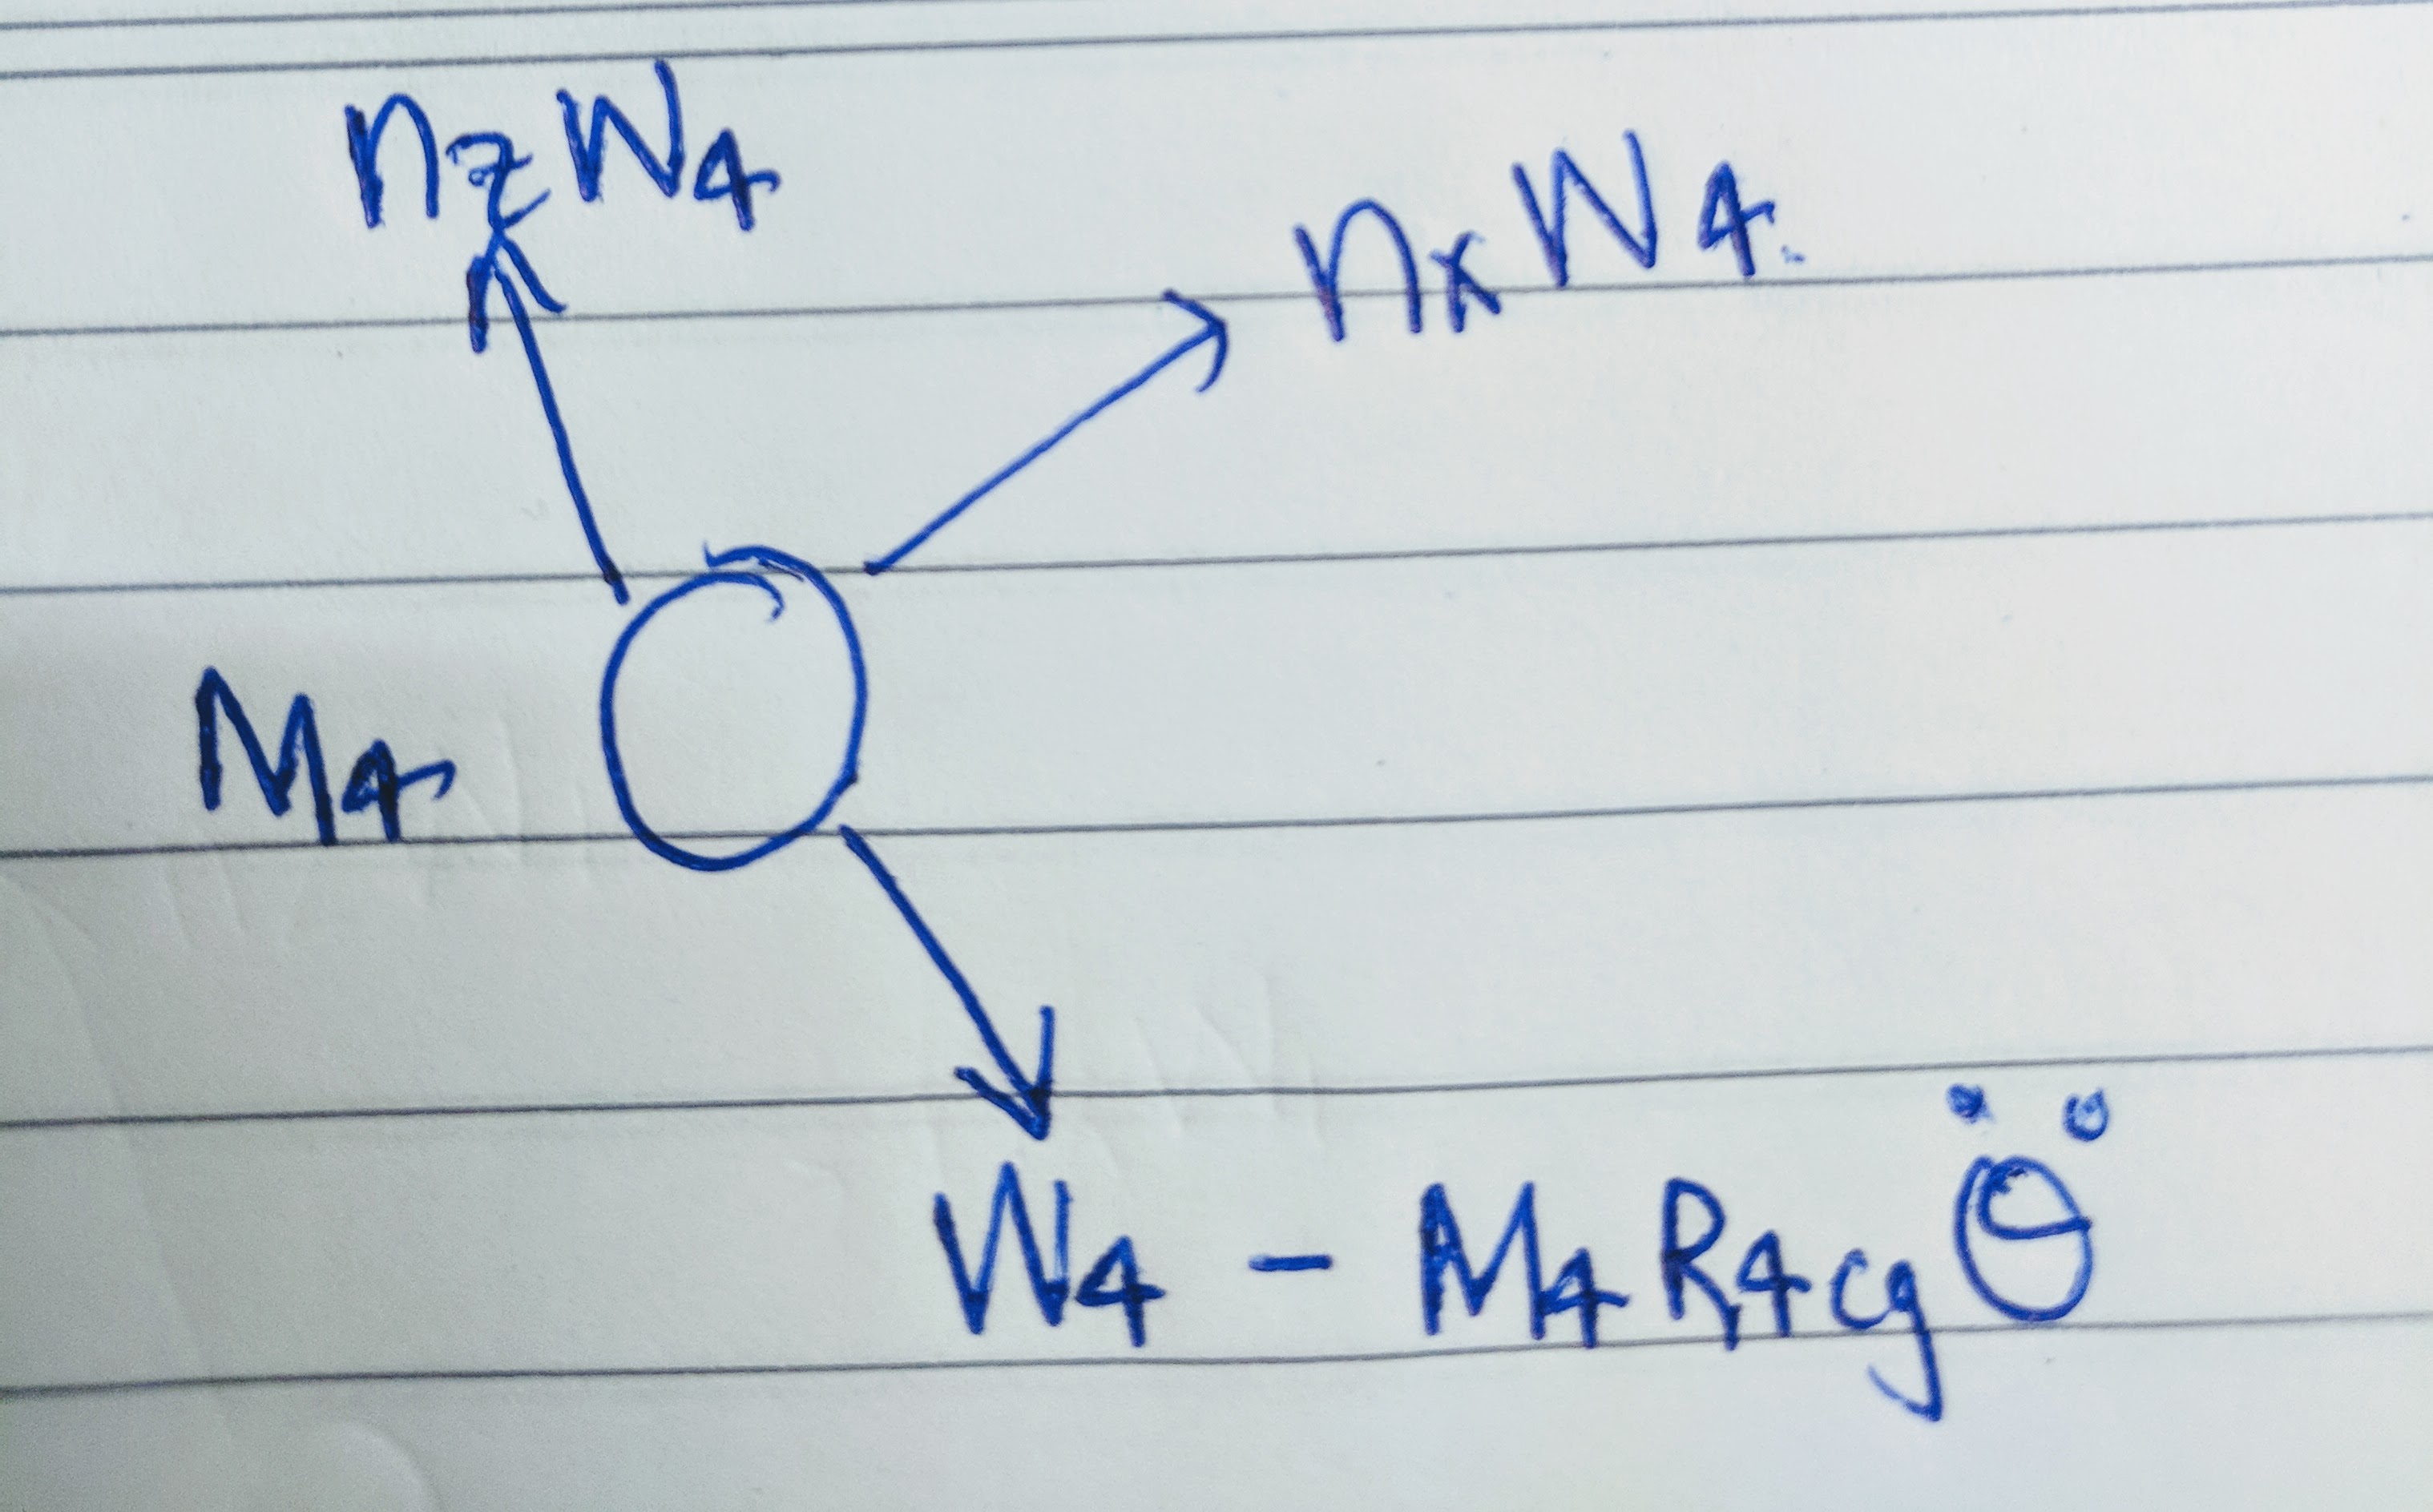 nzW4
nxW4.
M4
W4 - M4R4cgθ̈